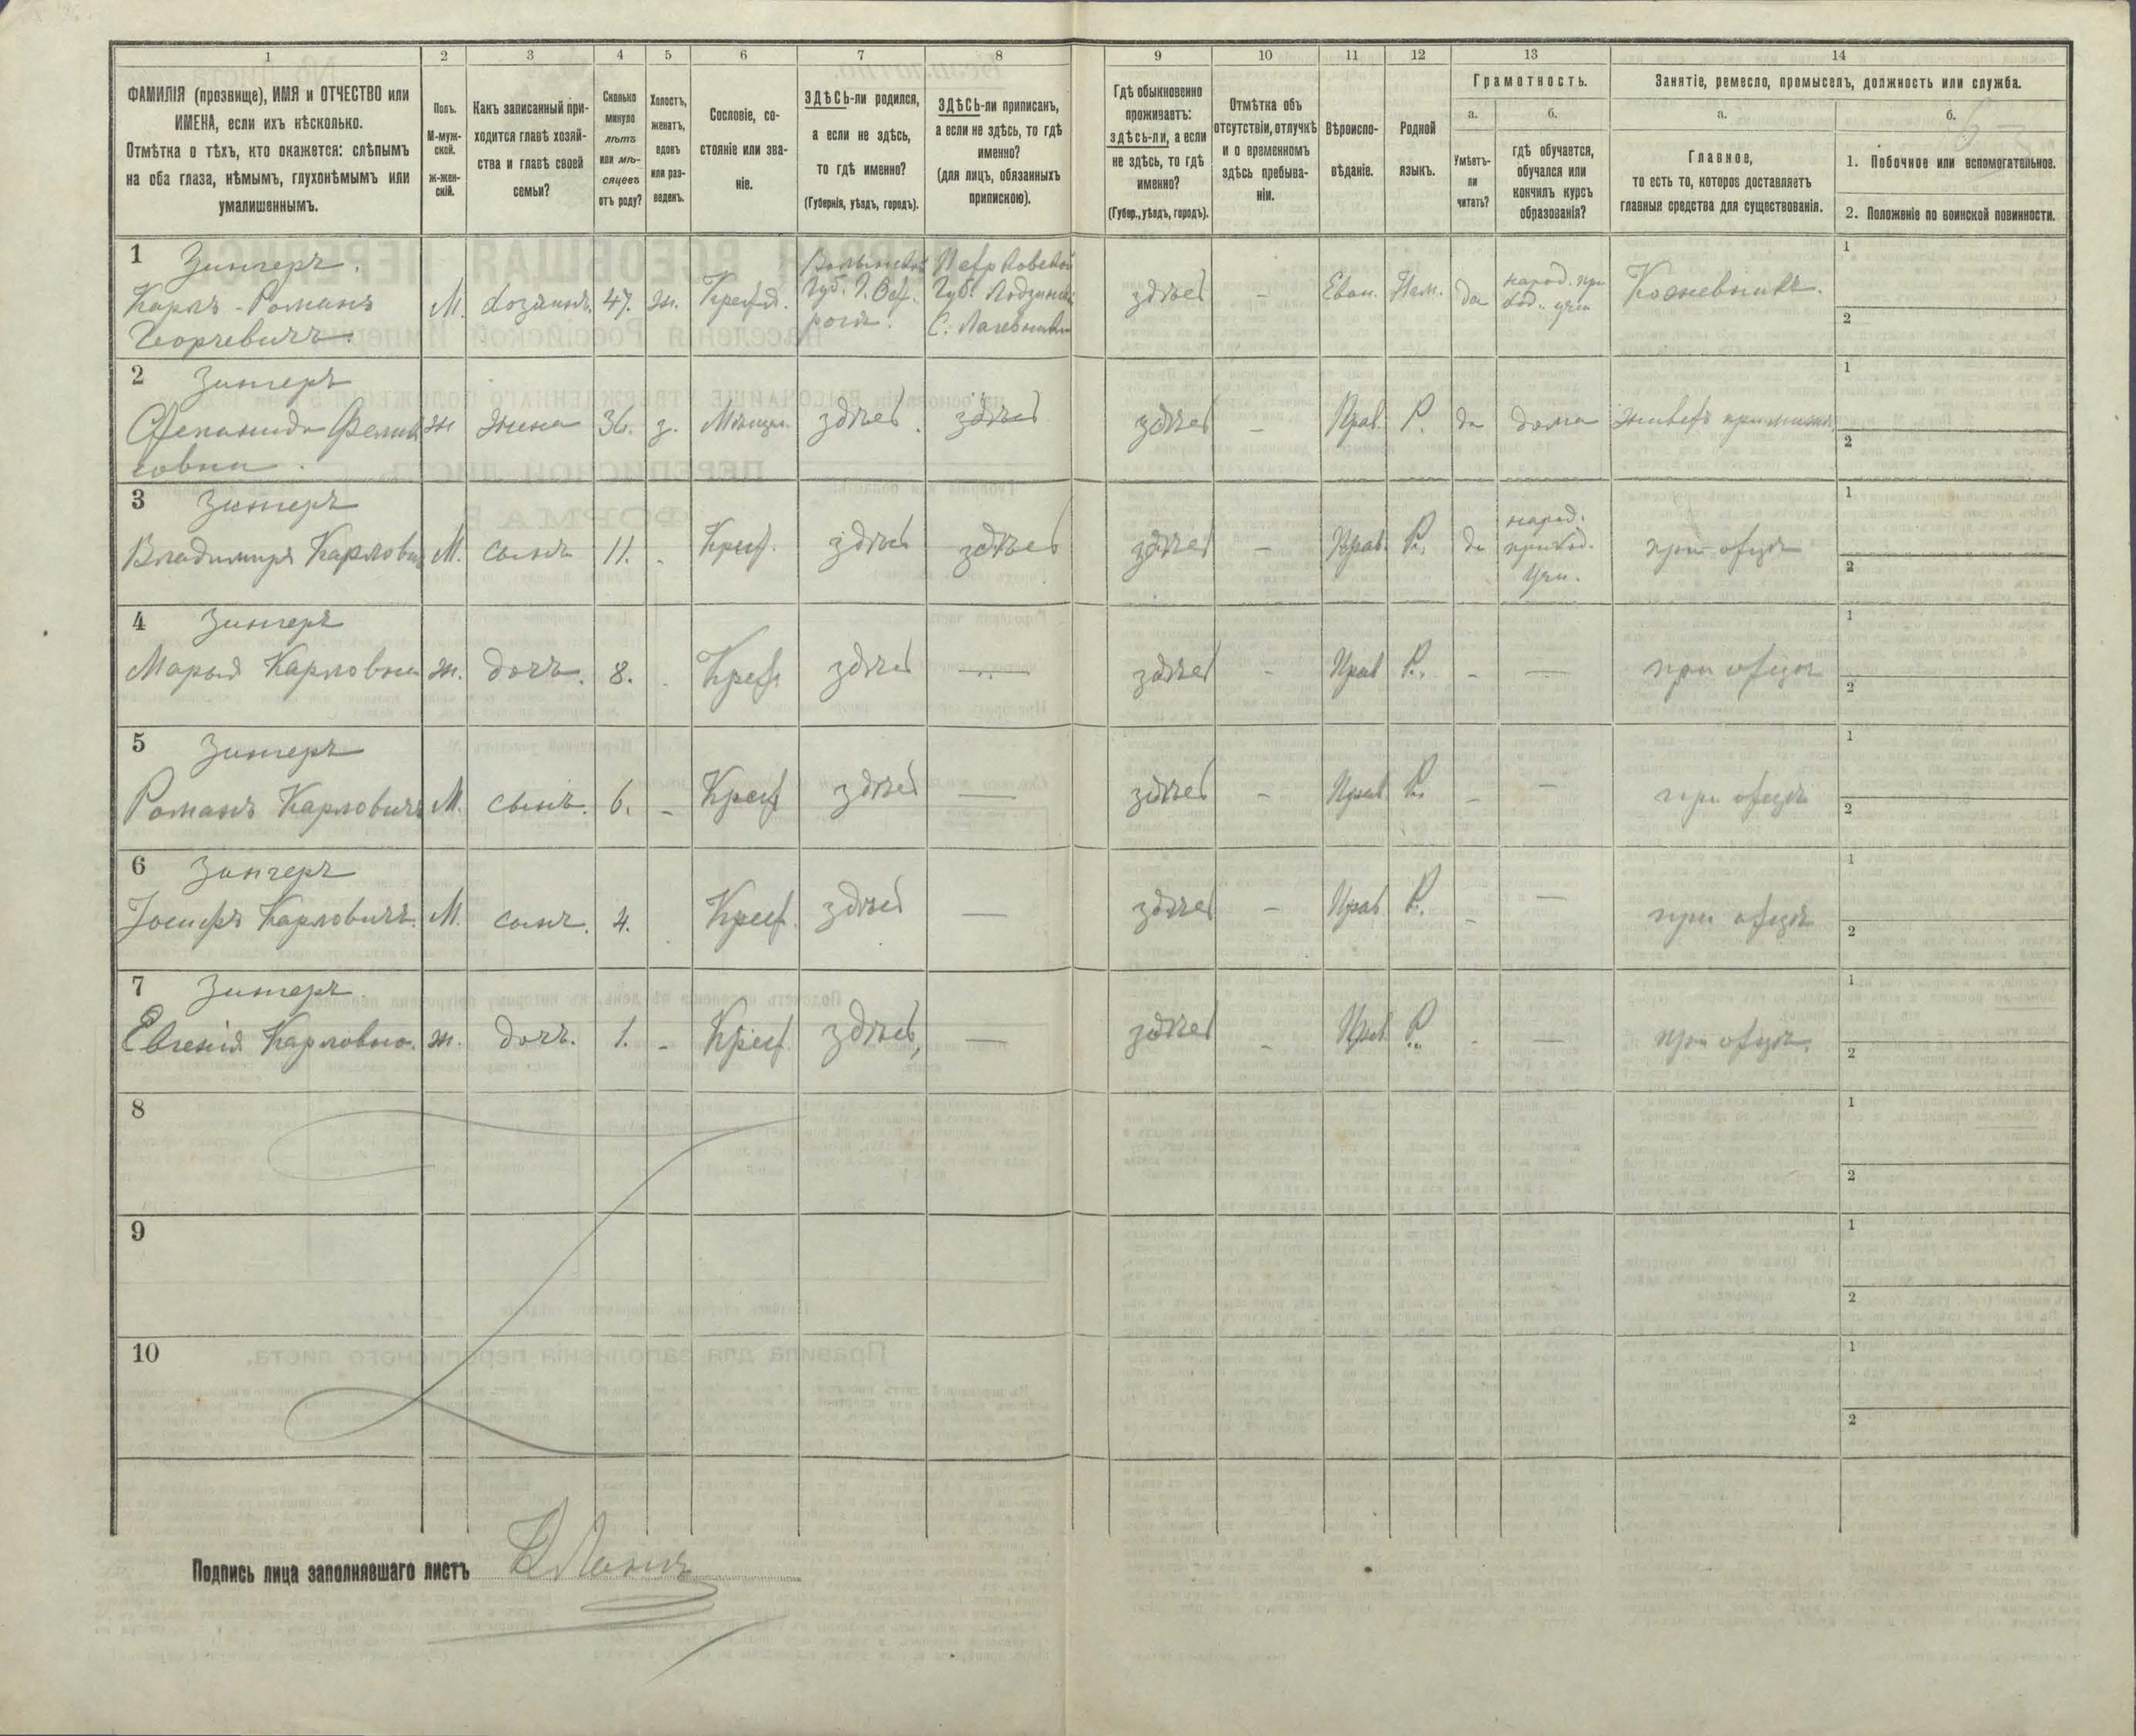 1
2
3
4
5
6
7
8
9
10
11
12
13
14
ФАМИЛІЯ (прозвище), ИМЯ и ОТЧЕСТВО или
ИМЕНА, если ихъ нѣсколько.
Отмѣтка о тѣхъ, кто окажется: слѣпымъ
на оба глаза, нѣмымъ, глухонѣмымъ или
умалишеннымъ.
Полъ.
М-муж-
ской.
ж-жен-
скій.
Какъ записанный при-
ходится главѣ хозяй-
ства и главѣ своей
семьи?
Сколько
минуло
лѣтъ
или мѣ-
сяцевъ
отъ роду?
Холостъ,
женатъ,
вдовъ
или раз-
веденъ.
Сословіе, со-
стояніе или зва-
ніе.
ЗДѢСЬ-ли родился,
а если не здѣсь,
то гдѣ именно?
(Губернія, уѣздъ, городъ).
ЗДѢСЬ-ли приписанъ,
а если не здѣсь, то гдѣ
именно?
(для лицъ, обязанныхъ
припискою).
Гдѣ обыкновенно
проживаетъ:
здѣсь-ли, а если
не здѣсь, то гдѣ
именно?
(Губер., уѣздъ, городъ).
Отмѣтка объ
отсутствіи, отлучкѣ
и о временномъ
здѣсь пребыва-
ніи.
Вѣроиспо-
вѣданіе.
Родной
языкъ.
Грамотность.
а.
Умѣетъ-
ли
читать?
б.
гдѣ обучается,
обучался или
кончилъ курсъ
образованія?
Занятіе, ремесло, промыселъ, должность или служба.
а.
Главное,
то есть то, которое доставляетъ
главныя средства для существованія.
б.
1. Побочное или вспомогательное.
2. Положеніе по воинской повинности.
1 Зингеръ.
Карлъ-Романъ
Георгіевичъ.
М. хозяинъ. 47. ж. Крест.
Волынской
Губ. г. Ост-
рогъ.
Петроковской
Губ. Лодзинск.
С. Лагевники
здѣсь - Еван. Нѣм. да
народ. при
ход. учи
Кожевникъ.
1
2
2 Зингеръ
Степанида Феликсовна.
ж жена 36. з. Мѣщан. здѣсь. здѣсь здѣсь - Прав. Р. да дома живетъ при мужѣ
1
2
3 Зингеръ
Владимиръ Карлович
М. сынъ 11. - Крест. здѣсь здѣсь здѣсь - Прав. Р. да
народ.
приход.
Учи.
при отцѣ
1
2
4 Зингеръ
Марья Карловна ж. дочь. 8. Крест. здѣсь — здѣсь - Прав Р. - — при отцѣ
1
2
5 Зингеръ
Романъ Карловичъ М. сынъ. 6. - Крест здѣсь — здѣсь - Прав. Р. - — при отцѣ
1
2
6 Зингеръ
Іосифъ Карловичъ. М. сынъ. 4. Крест. здѣсь — здѣсь - Прав Р. - — при отцѣ
1
2
7 Зингеръ.
Евгенія Карловна. ж. дочь. 1. - Крест. здѣсь, — здѣсь - Прав Р. - — при отцѣ.
1
2
8
1
2
9
1
2
10
1
2
Подпись лица заполнявшаго листъ